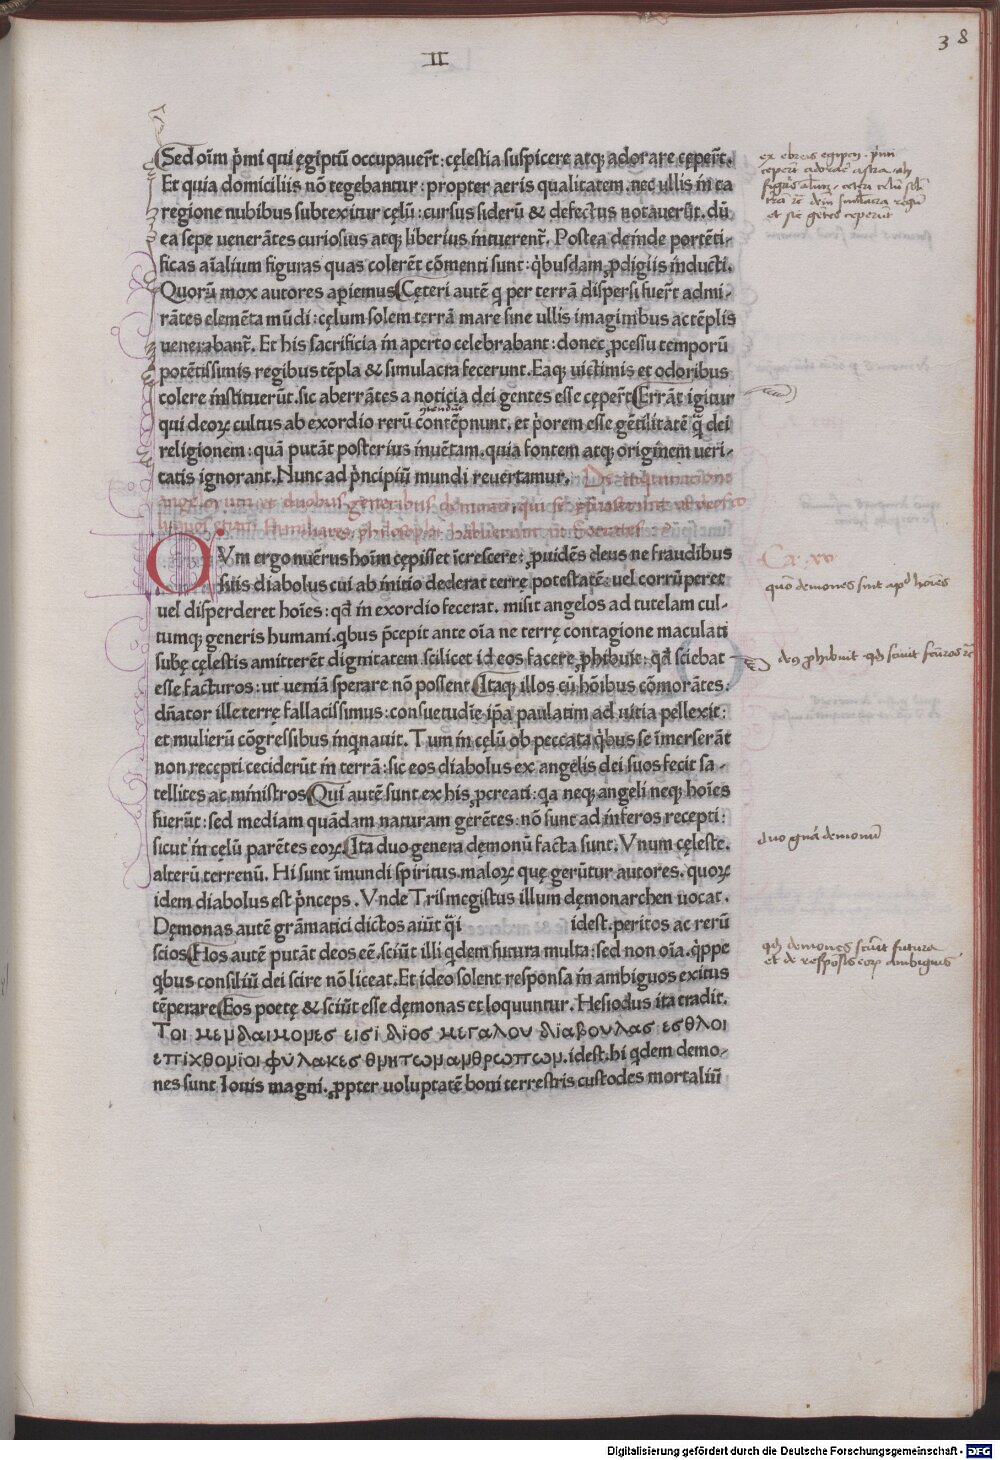 38
II
Sed oīm p̄mi qui ęgiptū occupauer̄t: cęlestia suspicere atq; adorare cęper̄t.
Et quia domiciliis nō tegebantur: propter aeris qualitatem. nec ullis in ea
regione nubibus subtexitur cęlū: cursus siderū & defectus notauer̄ūt. dū
ea sepe uenerātes curiosius atq; liberius intuerent̄. Postea deinde portēti-
ficas aīalium figuras quas colerēt cōmenti sunt: q̄busdam ꝓdigiis inducti.
Quorū mox autores aperiemus Cęteri autē q per terrā dispersi fuer̄t admi-
rātes elemēta mūdi: cęlum solem terrā mare sine ullis imaginibus ac tēplis
uenerabant̄. Et his sacrificia in aperto celebrabant: donec ꝓcessu temporū
potētissimis regibus tēpla & simulacra fecerunt. Eaq; uictimis et odoribus
colere instituerūt. sic aberrātes a noticia dei gentes esse cęper̄t Errāt igitur
qui deoꝝ cultus ab exordio rerū contēpnunt. et p̄orem esse gētilitatē q̄ dei
religionem: quā putāt posterius inuētam. quia fontem atq; originem ueri-
tatis ignorant. Nunc ad p̄ncipiū mundi reuertamur.
angelorum et duobus generibus demonū, qui
Ca. xv
CVm ergo nūerus hoīm cępisset īcrescere: ꝓuidēs deus ne fraudibus
suis diabolus cui ab initio dederat terrę potestatē: uel corrūperet
uel disperderet hoīes: qd̄ in exordio fecerat. misit angelos ad tutelam cul-
tumq; generis humani. qbus p̄cepit ante oīa ne terrę contagione maculati
subę cęlestis amitterēt dignitatem. scilicet id eos facere ꝓhibuit: qd̄ sciebat
esse facturos: ut ueniā sperare nō possent Itaq; illos cū hōibus cōmorātes:
dn̄ator ille terrę fallacissimus: consuetudīe ip̄a paulatim ad uitia pellexit:
et mulierū cōgressibus inqnauit. Tum in cęlū ob peccata q̄bus se īmerserāt
non recepti ceciderūt in terrā: sic eos diabolus ex angelis dei suos fecit sa-
tellites ac ministros Qui autē sunt ex his ꝓcreati: qa neq; angeli neq; hoīes
fuerūt: sed mediam quādam naturam gerētes: nō sunt ad inferos recepti:
sicut in cęlū parētes eoꝝ. Ita duo genera dęmonū facta sunt. Vnum cęleste.
alterū terrenū. Hi sunt īmundi spiritus. maloꝝ quę gerūtur autores. quoꝝ
idem diabolus est p̄nceps. Vnde Trismegistus illum dęmonarchen uocat.
Dęmonas autē grāmatici dictos aiūt q̄i idest. peritos ac rerū
scios Hos autē putāt deos eē. sciūt illi qdem futura multa: sed non oīa. q̄ppe
qbus consiliū dei scire nō liceat. Et ideo solent responsa in ambiguos exitus
tēperare Eos poetę & sciūt esse dęmonas et loquuntur. Hesiodus ita tradit.
Τοι μεν δαιμονες εισι διος μεγαλου διαβουλας εσθλοι
επιχθονιοι φυλακες θνητων ανθρωπων. idest. hi qdem demo-
nes sunt Iouis magni. ꝓpter uoluptatē boni terrestris custodes mortaliū
quō demones sint apd hoīes
duo gn̄a demonū
qd demones sciūt futura
et de responsis eoꝝ ambiguis
Digitalisierung gefördert durch die Deutsche Forschungsgemeinschaft - DFG